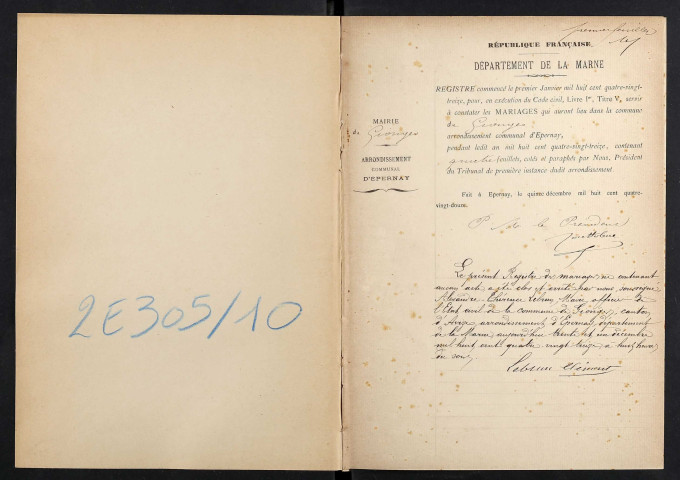 2E305/10
premier feuillet
RÉPUBLIQUE FRANÇAISE.
DÉPARTEMENT DE LA MARNE
MAIRIE
de Gionges
ARRONDISSEMENT
COMMUNAL
D'EPERNAY
REGISTRE commencé le premier Janvier mil huit cent quatre-vingt-
treize, pour, en exécution du Code civil, Livre Ier, Titre V, servir
à constater les MARIAGES qui auront lieu dans la commune
de Gionges
arrondissement communal d'Epernay,
pendant ledit an mil huit cent quatre-vingt-treize, contenant
feuillets, cotés et paraphés par Nous, Président
du Tribunal de première instance dudit arrondissement.
Fait à Epernay, le quinze décembre mil huit cent quatre-
vingt-douze.
le Président
Le présent Registre de mariage ne contenant
aucun acte a été clos et arrêté par nous soussigné
Alexandre Maire officier de
l'Etat civil de la commune de Gionges, canton
d'Avize arrondissement d'Epernay, département
de la Marne, aujourd'hui trente et un décembre
mil huit cent quatre vingt treize, à huit heures
du soir